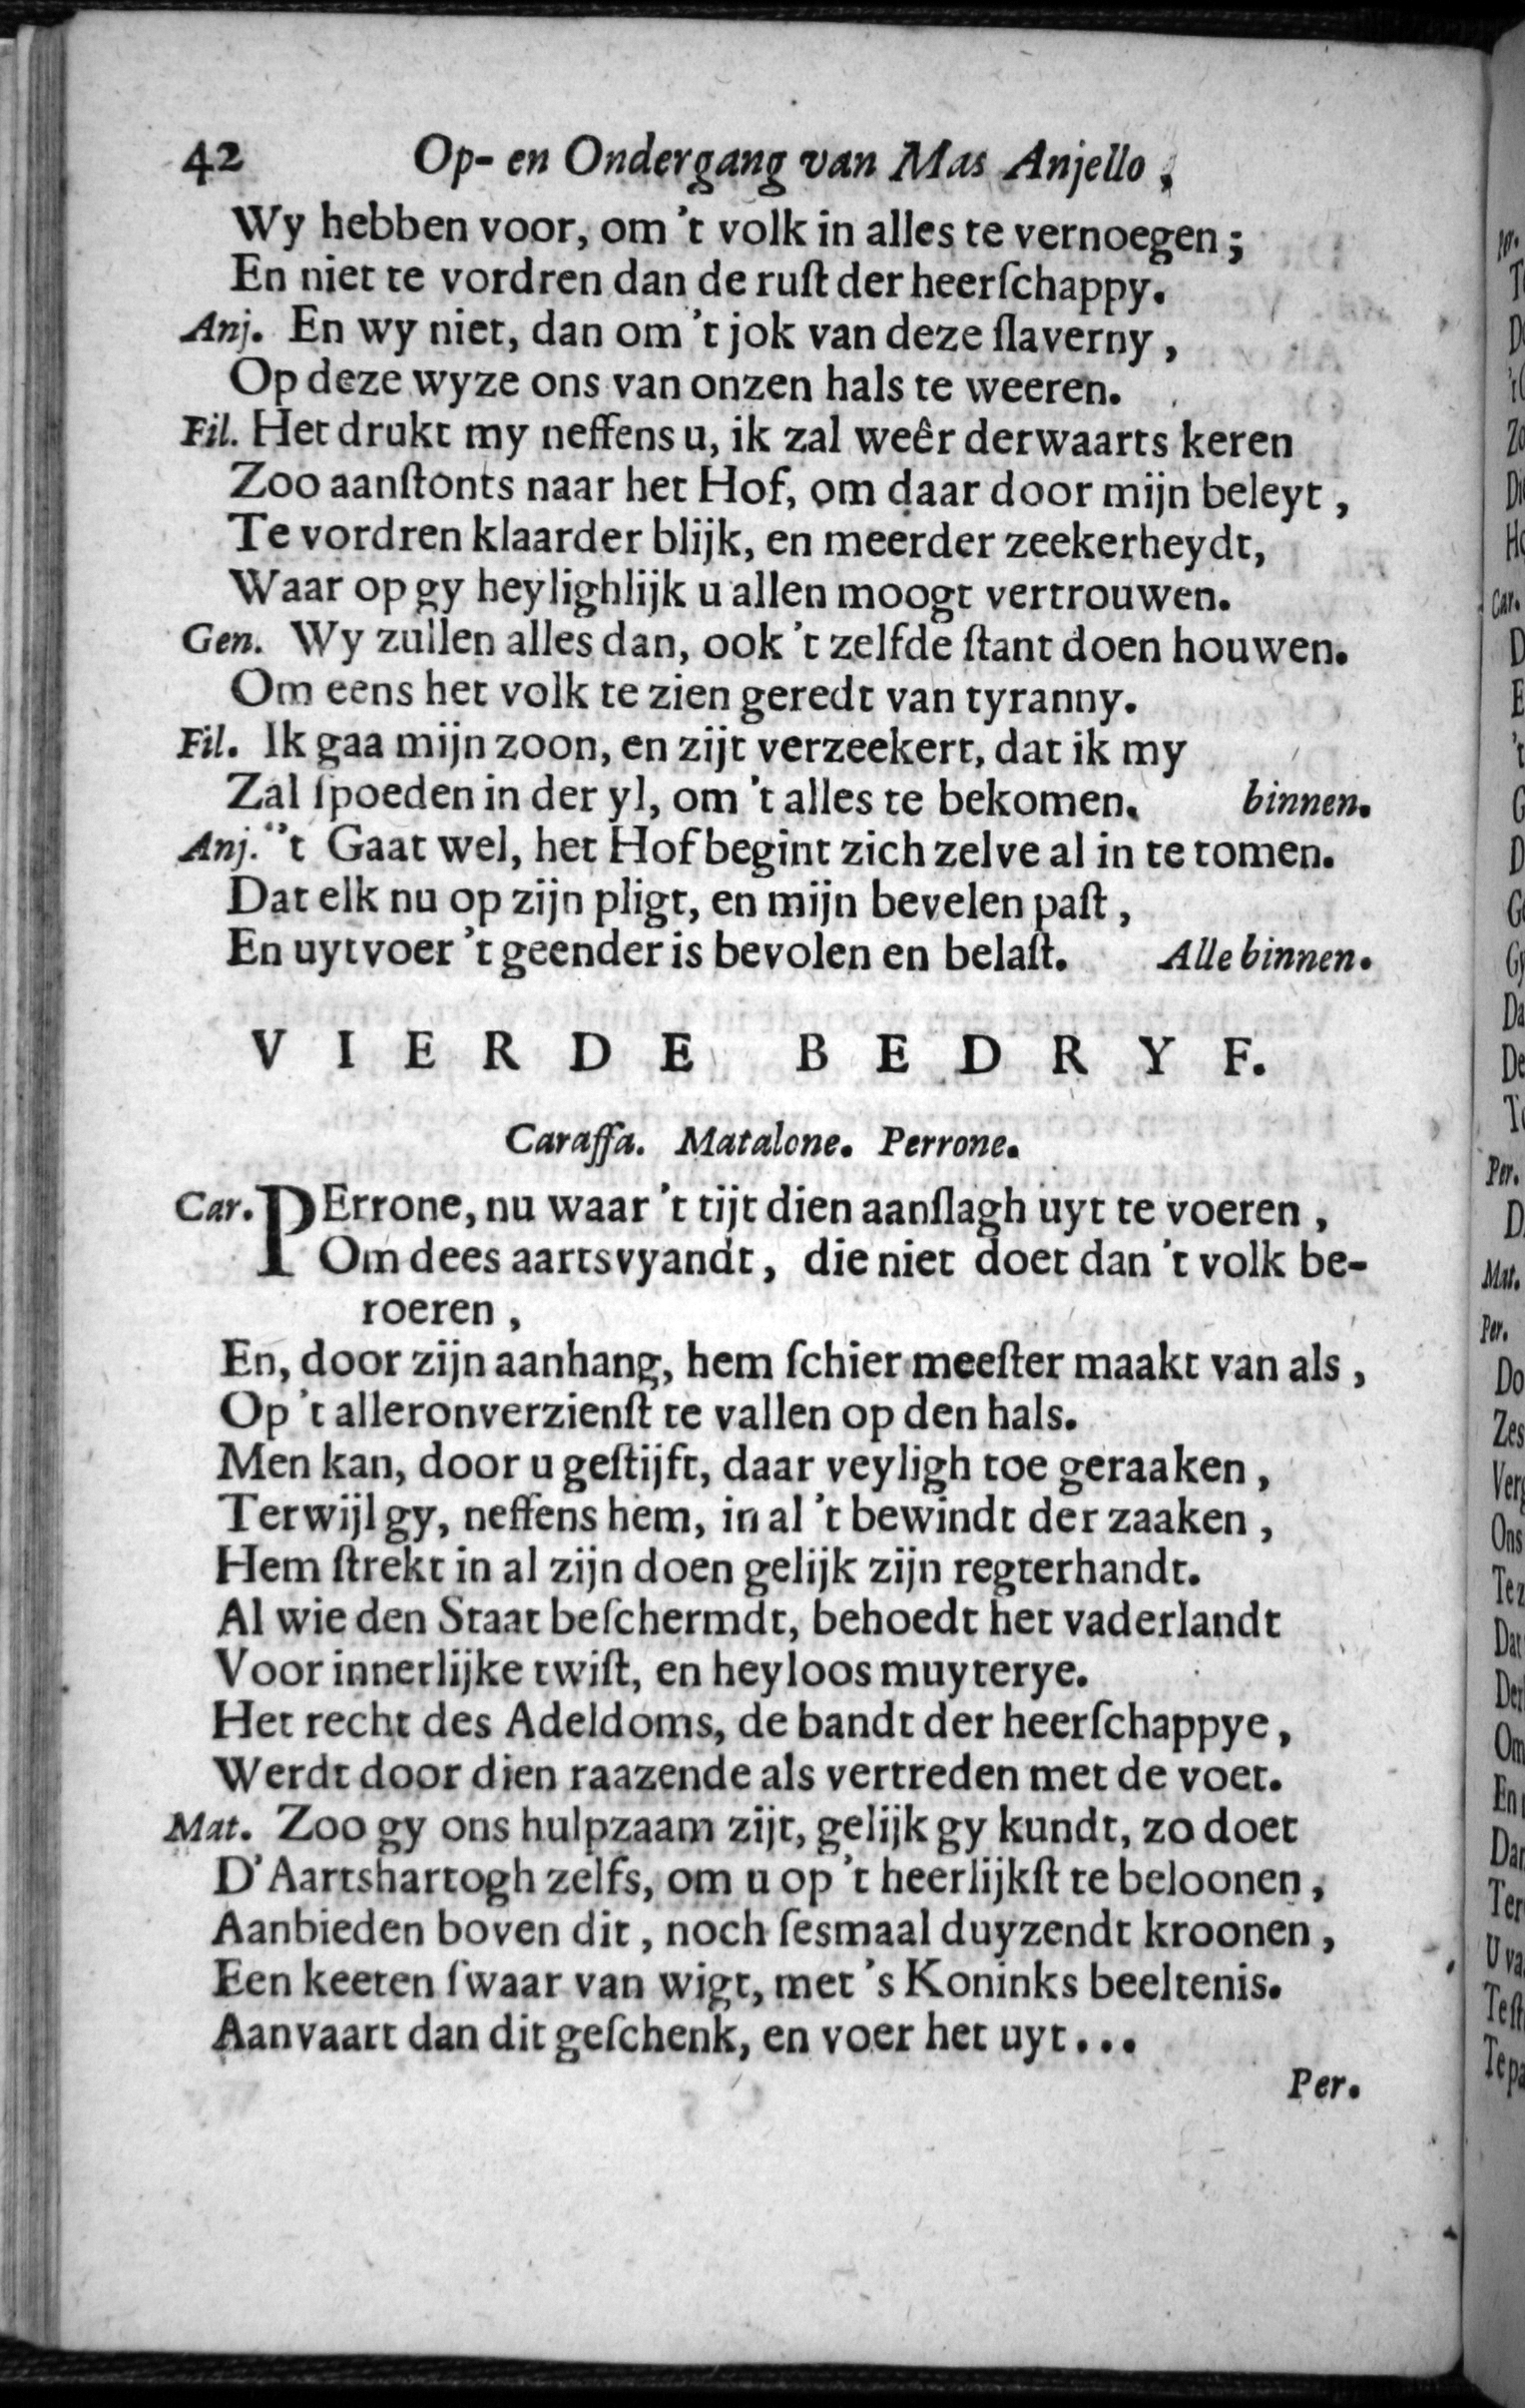 42 Op- en Ondergang van Mas Anjello,
Wy hebben voor, om 't volk in alles te vernoegen;
En niet te vordren dan de ruſt der heerſchappy.
Anj. En wy niet, dan om 't jok van deze ſlaverny,
Op deze wyze ons van onzen hals te weeren.
Fil. Het drukt my neffens u, ik zal weêr derwaarts keren
Zoo aanſtonts naar het Hof, om daar door mijn beleyt,
Te vordren klaarder blijk, en meerder zeekerheydt,
Waar op gy heylighlijk u allen moogt vertrouwen.
Gen. Wy zullen alles dan, ook 't zelfde ſtant doen houwen.
Om eens het volk te zien geredt van tyranny.
Fil. Ik gaa mijn zoon, en zijt verzeekert, dat ik my
Zal ſpoeden in der yl, om 't alles te bekomen. binnen.
Anj. 't Gaat wel, het Hof begint zich zelve al in te tomen.
Dat elk nu op zijn pligt, en mijn bevelen paſt,
En uytvoer 't geender is bevolen en belaſt. Alle binnen.
VIERDE BEDRYF.
Caraffa. Matalone. Perrone.
Car. PErrone, nu waar 't tijt dien aanſlagh uyt te voeren,
Om dees aartsvyandt, die niet doet dan 't volk be-
roeren,
En, door zijn aanhang, hem ſchier meeſter maakt van als,
Op 't alleronverzienſt te vallen op den hals.
Men kan, door u geſtijft, daar veyligh toe geraaken,
Terwijl gy, neffens hem, in al 't bewindt der zaaken,
Hem ſtrekt in al zijn doen gelijk zijn regterhandt.
Al wie den Staat beſchermdt, behoedt het vaderlandt
Voor innerlijke twiſt, en heyloos muyterye.
Het recht des Adeldoms, de bandt der heerſchappye,
Werdt door dien raazende als vertreden met de voet.
Mat. Zoo gy ons hulpzaam zijt, gelijk gy kundt, zo doet
D'Aartshartogh zelfs, om u op 't heerlijkſt te beloonen,
Aanbieden boven dit, noch ſesmaal duyzendt kroonen,
Een keeten ſwaar van wigt, met 's Koninks beeltenis.
Aanvaart dan dit geſchenk, en voer het uyt...
Per.